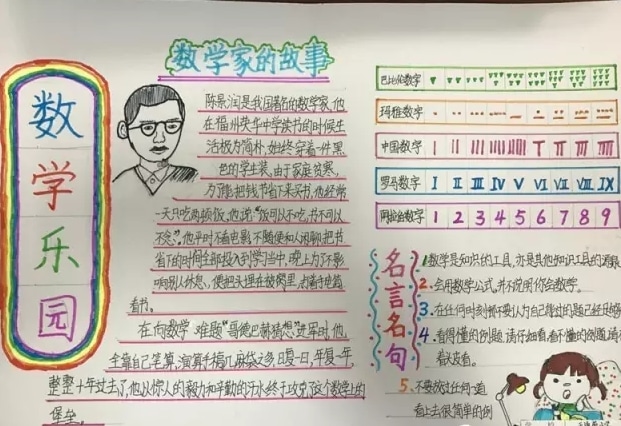 数学乐园
数学家的故事
陈景润是我国著名的数学家,他
在福州英华中学读书的时候生
活极为简朴,始终穿着一件黑
色的学生装,由于家庭贫寒,
为了能把钱节省下来买书,他经常
一天只吃两顿饭,他说:"饭可以不吃,书不可以
不念"。他平时不看电影,不随便和人闲聊,把节
省下的时间全部投入到学习当中,晚上为了不影
响别人休息,便把头埋在被褥里,打着手电筒
看书。
在向数学难题"哥德巴赫猜想"进军时,他
全靠自己笔算,演算手稿几麻袋之多,日复一日,年复一年,
整整十年过去了,他以惊人的毅力和辛勤的汗水终于攻克了这个数学上的
堡垒。
巴比伦数字
玛雅数字
中国数字
罗马数字 I II III IV V VI VII VIII IX
阿拉伯数字 1 2 3 4 5 6 7 8 9
名言名句
1.数学是知识的工具,亦是其他知识工具的源泉
2.会用数学公式,并不说明你会数学。
3.在任何时刻都不要认为自己
4.看得懂的例题,请仔细看,看不懂的例题,请
看。
5.不要放过任何一道
看上去很简单的例